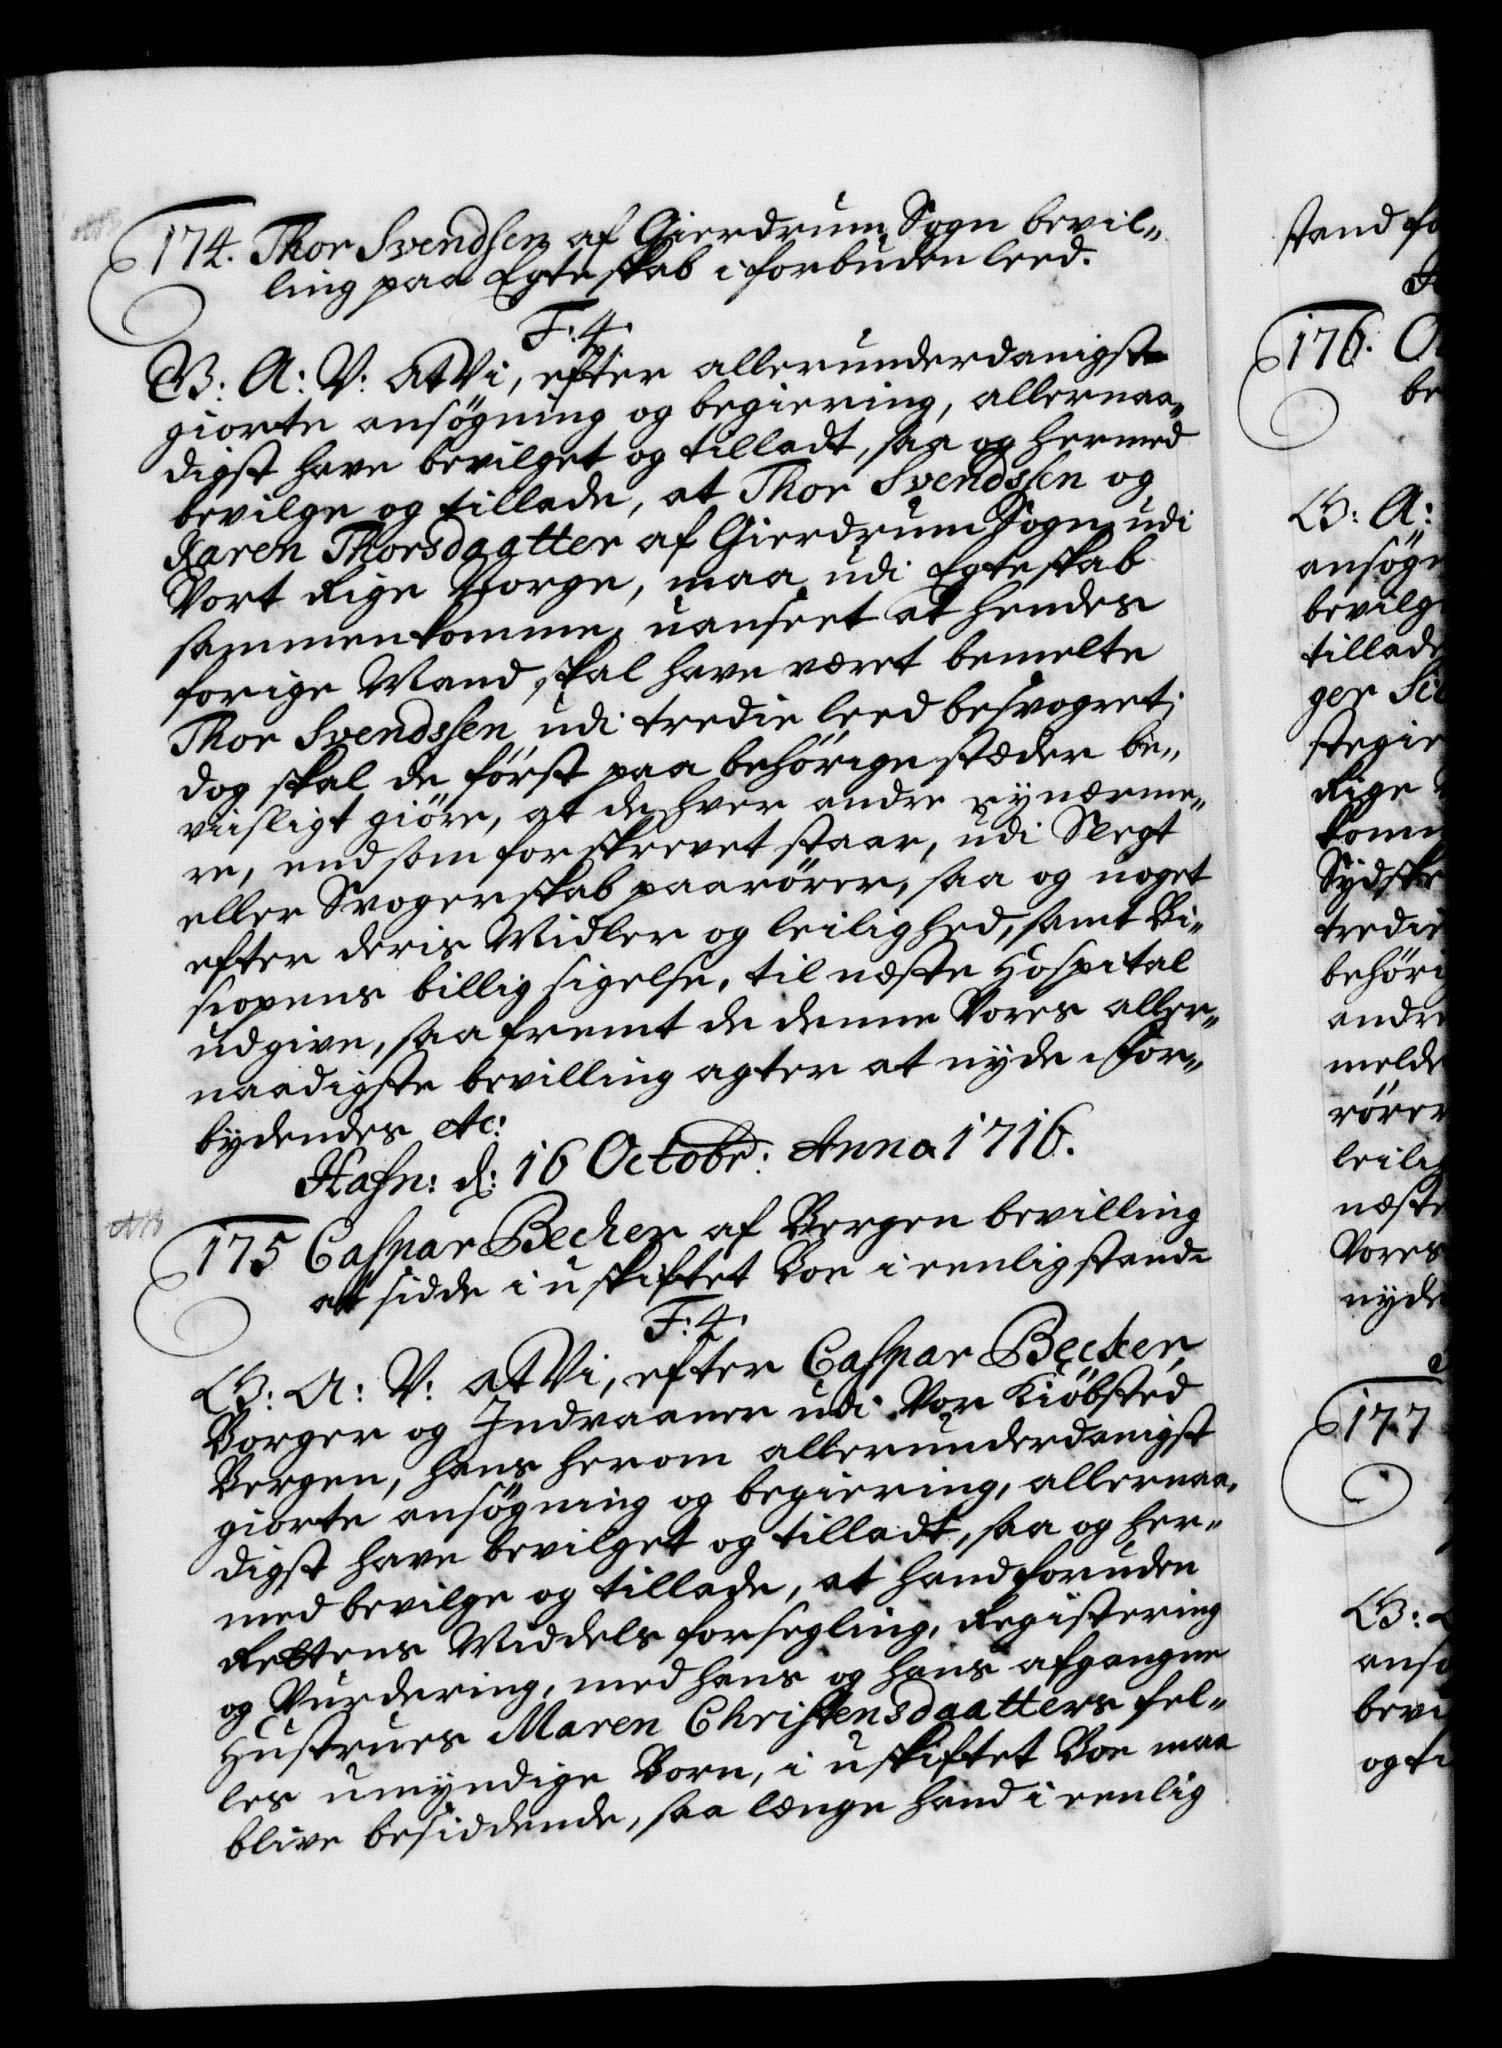 174. Thor Svendsen af Gierdrum Sogn bevil-
ling paa Egteskab i forbuden leed.
F: 4.
G: A: V: At Vi, efter allerunderdanigst
giorte ansøgning og begiering, allernaa-
digst have bevilget og tilladt, saa og hermed
bevilge og tillade, at Thor Svendssen og
Karen Thorsdaatter af Gierdrum Sogn udi
Vort Rige Norge, maa udi Egteskab
sammenkomme, uanseet at hendes
forige Mand skal have været bemelte
Thor Svendssen udi tredie leed besvogret;
dog skal de først paa behörige stæder be-
viisligt giöre, at de hver andre ey nærme-
re, end som forskrevet staar, udi Slegt
eller Svogerskab paarörer, saa og noget
efter deris Midler og leilighed, samt Bi-
scopens billig sigelse, til næste Hospital
udgive, saafremt de denne Vores aller-
naadigste bevilling agter at nyde. For-
bydendes etc:
Hafn: d: 16 Octobr: Anno 1716.
175 Caspar Becker af Bergen bevilling
at sidde i uskiftet Boe i eenlig stand
F: 4.
G: A: V: At Vi, efter Caspar Becker,
Borger og Indvaaner udi Vor Kiöbsted
Bergen, hans herom allerunderdanigst
giorte ansøgning og begiering, allernaa-
digst have bevilget og tilladt, saa og her-
med bevilge og tillade, at hand foruden
Rettens Middels forsegling, Registering
og Vurdering, med hans og hans afgangne
Hustrues Maren Christensdaatters fel-
les umyndige Born, i uskiftet Boe maa
blive besiddende, saa længe hand i eenlig
stand fo
176. 
be
G: A:
ansøgn
bevilg
tillade
ger
stegie
Rige
komm
Sydske
tredie
behöri
andre
melde
rörer
leilig
næste
Vores
nyde
177
G:
ansø
bevi
og ti